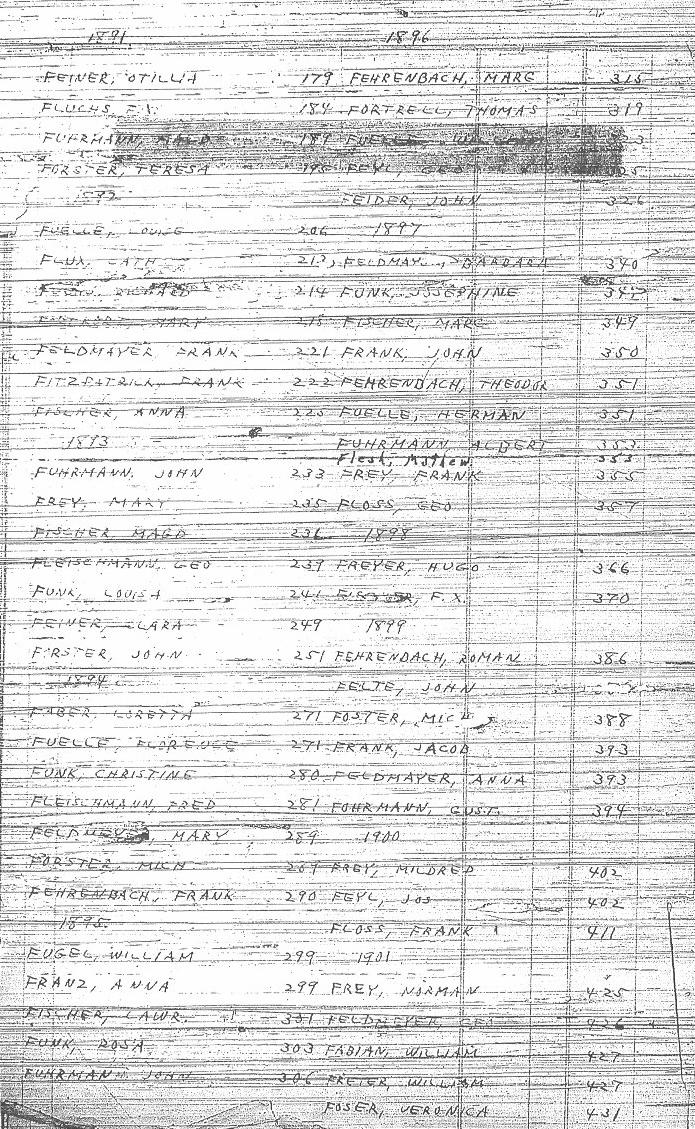 1891
FEINER, OTILLIA 179
FLUCHS, F.X. 184
FUHRMANN, MAGD 189
FORSTER, TERESA
1892
FUELLE, LOUISE 206
FLUX, CATH
RICHARD 214
MARY 218
FELDMAYER FRANK 221
FITZPATRICK, FRANK 222
FISCHER, ANNA 225
1893
FUHRMANN, JOHN 233
FREY, MARY 235
FISCHER MAGD 236
FLEISCHMANN, GEO 239
FUNK, LOUISA 241
FEINER, CLARA 249
FIRSTER, JOHN 251
1894
FABER, LORETTA 271
FUELLE, FLORENCE 271
FUNK, CHRISTINE 280
FLEISCHMANN, FRED 281
MARY 289
FORSTER, MICH 289
FEHRENBACH, FRANK 290
1895
FUGEL, WILLIAM 299
FRANZ, ANNA 299
FISCHER, LAWR. 301
FUNK, ROSA 303
FUHRMANN JOHN 306
1896
FEHRENBACH, MARG 315
FORTRELL, THOMAS 319
FUELLE
FEYL, GEO
FEIDER, JOHN 326
1897
BARBARA 340
FUNK, JOSEPHINE 342
FISCHER, MARG 349
FRANK, JOHN 350
FEHRENBACH, THEODOR 351
FUELLE, HERMAN 351
FUHRMANN, ALBERT 353
Flesh, Mathew 353
FREY, FRANK 355
FLOSS, GEO 357
1898
FREYER, HUGO 366
F.X. 370
1899
FEHRENBACH, ROMAN 386
FELTE, JOHN
FOSTER, MICH 388
FRANK, JACOB 393
FELDMAYER, ANNA 393
FUHRMANN, GUST. 394
1900
FREY, MILDRED 402
FEYL, JOS 402
FLOSS, FRANK 411
1901
FREY, NORMAN 425
FELDMEYER, GEO 426
FABIAN, WILLIAM 427
FREIER, WILLIAM 427
FOSER, VERONICA 431